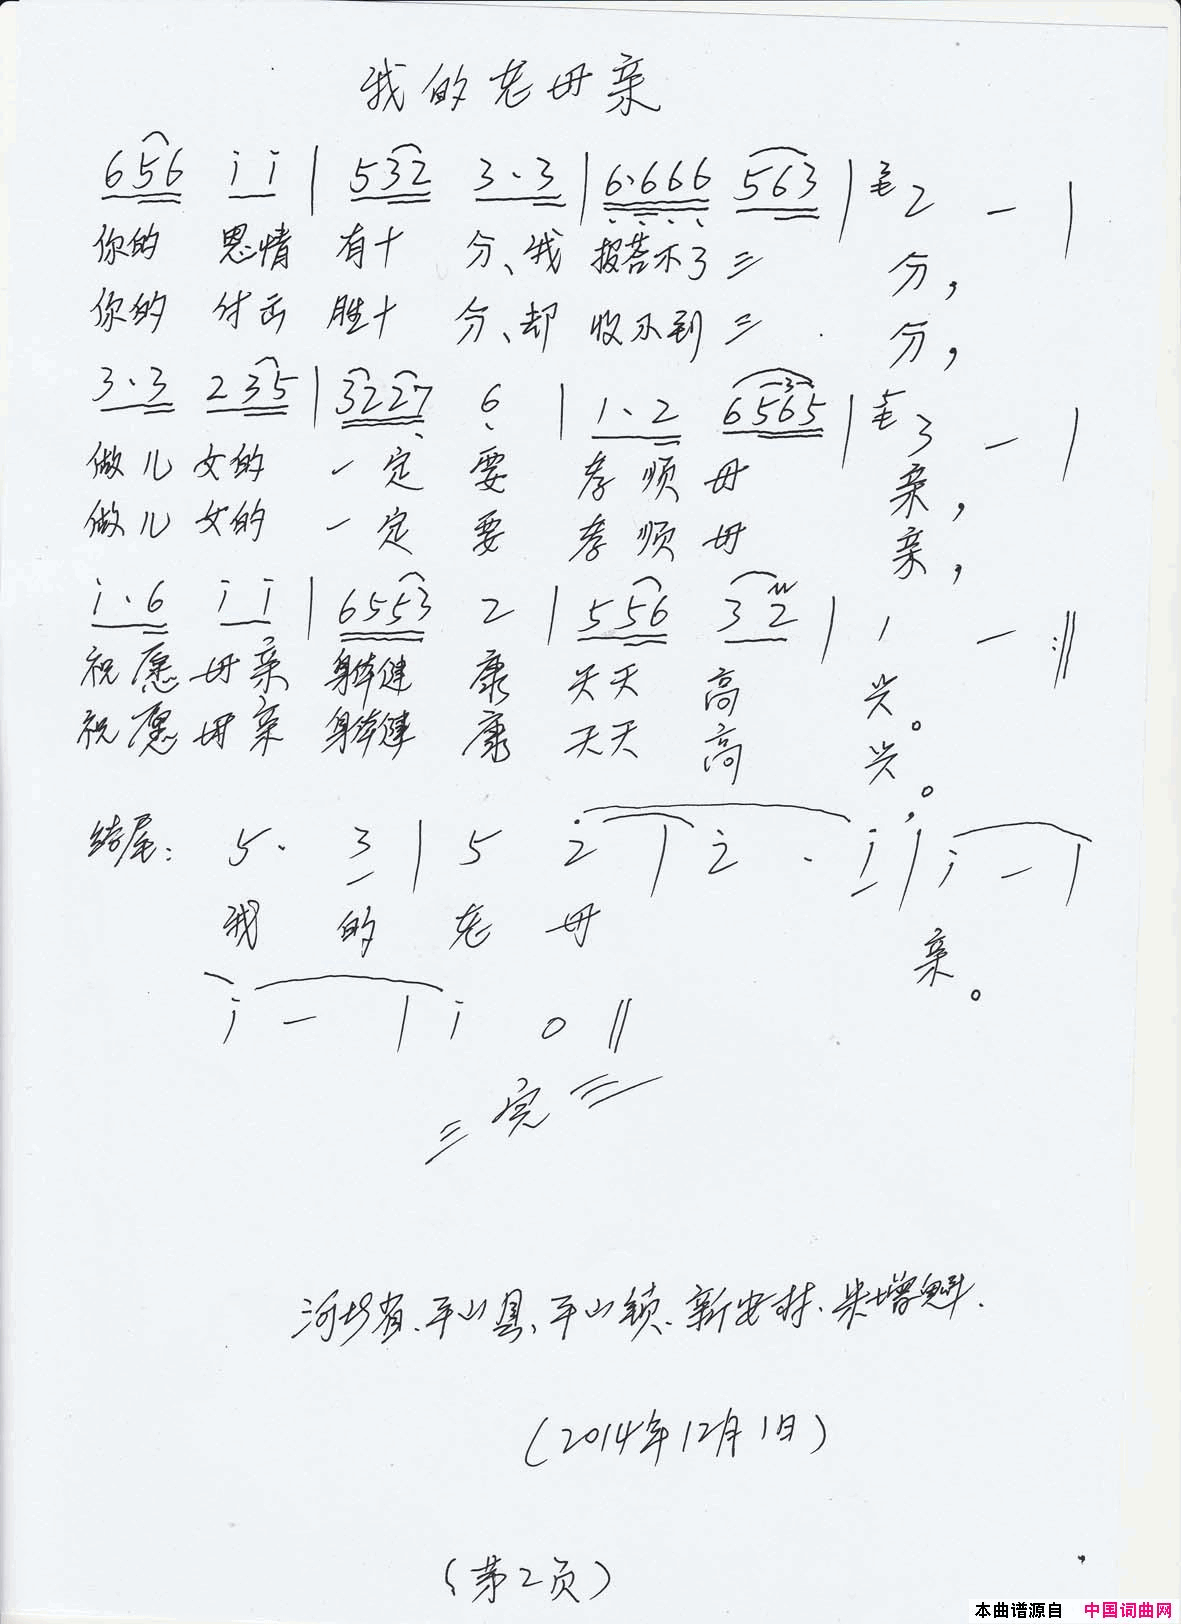 我的老母亲
656 i i | 532 3·3 | 6·666 563 | 2 — |
你的 恩情 有十 分、我 报答不了三 分，
你的 付出 胜十 分、却 收不到三 分，
3·3 235 | 3227 6 | 1·2 6565 | 3 — |
做儿 女的 一定 要 孝顺母 亲，
做儿 女的 一定 要 孝顺母 亲，
i·6 i i | 6553 2 | 556 32 | 1 — :||
祝愿母亲 身体健 康 天天 高 兴。
祝愿母亲 身体健 康 天天 高 兴。
结尾： 5· 3 | 5 2 | 2 · i | i — |
我 的 老 母 亲。
i — | i 0 ||
三完三
河北省、平山县、平山镇、新安村、增魁.
（2014年12月1日）
（第2页）
本曲谱源自 中国词曲网